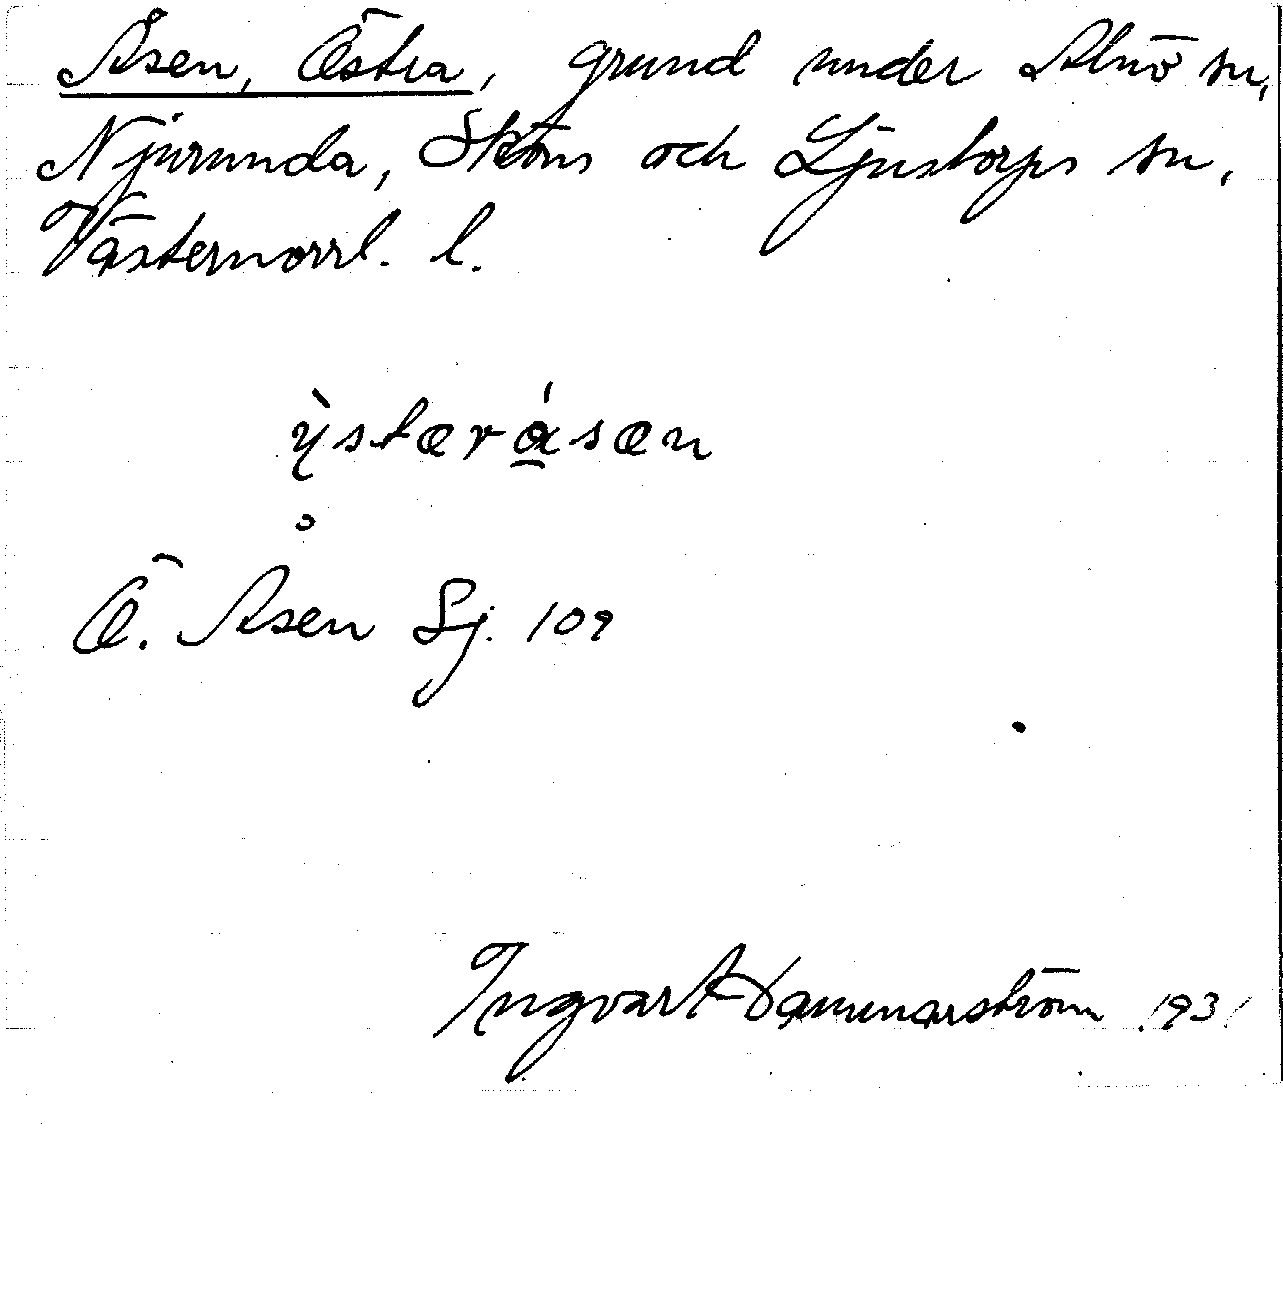 Åsen, Östra, grund under Alnö sn,
Njurunda, Sköns och Ljustorps sn,
Västernorrl. l.
ỳstærásæn
Ö. Åsen Sj. 109
Ingvar Hammarström 1931